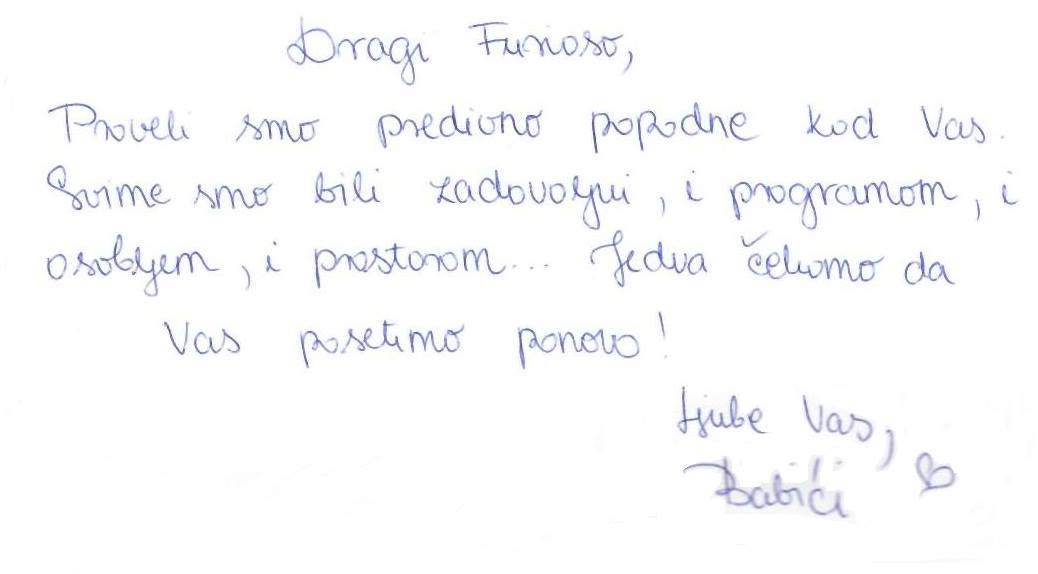 Dragi Furioso,
Proveli smo predivno popodne kod Vas.
Svime smo bili zadovoljni, i programom, i
osobljem, i prostorom... Jedva čekamo da
Vas posetimo ponovo!
Ljube Vas,
Babići